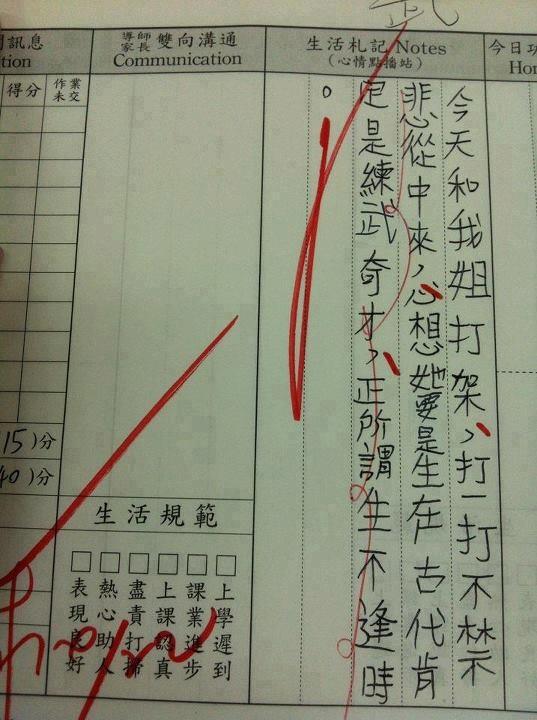 訊息
得分
作業
未交
15)分
40)分
導師
家長
雙向溝通
Communication
生活札記 Notes
(心情點播站)
今日
今天和我姐打架,打一打不禁
悲從中來,心想她要是生在古代肯
定是練武奇才,正所謂生不逢時
。
生活規範
□上學遲到
□課業進步
□上課認真
□盡責打掃
□熱心助人
□表現良好